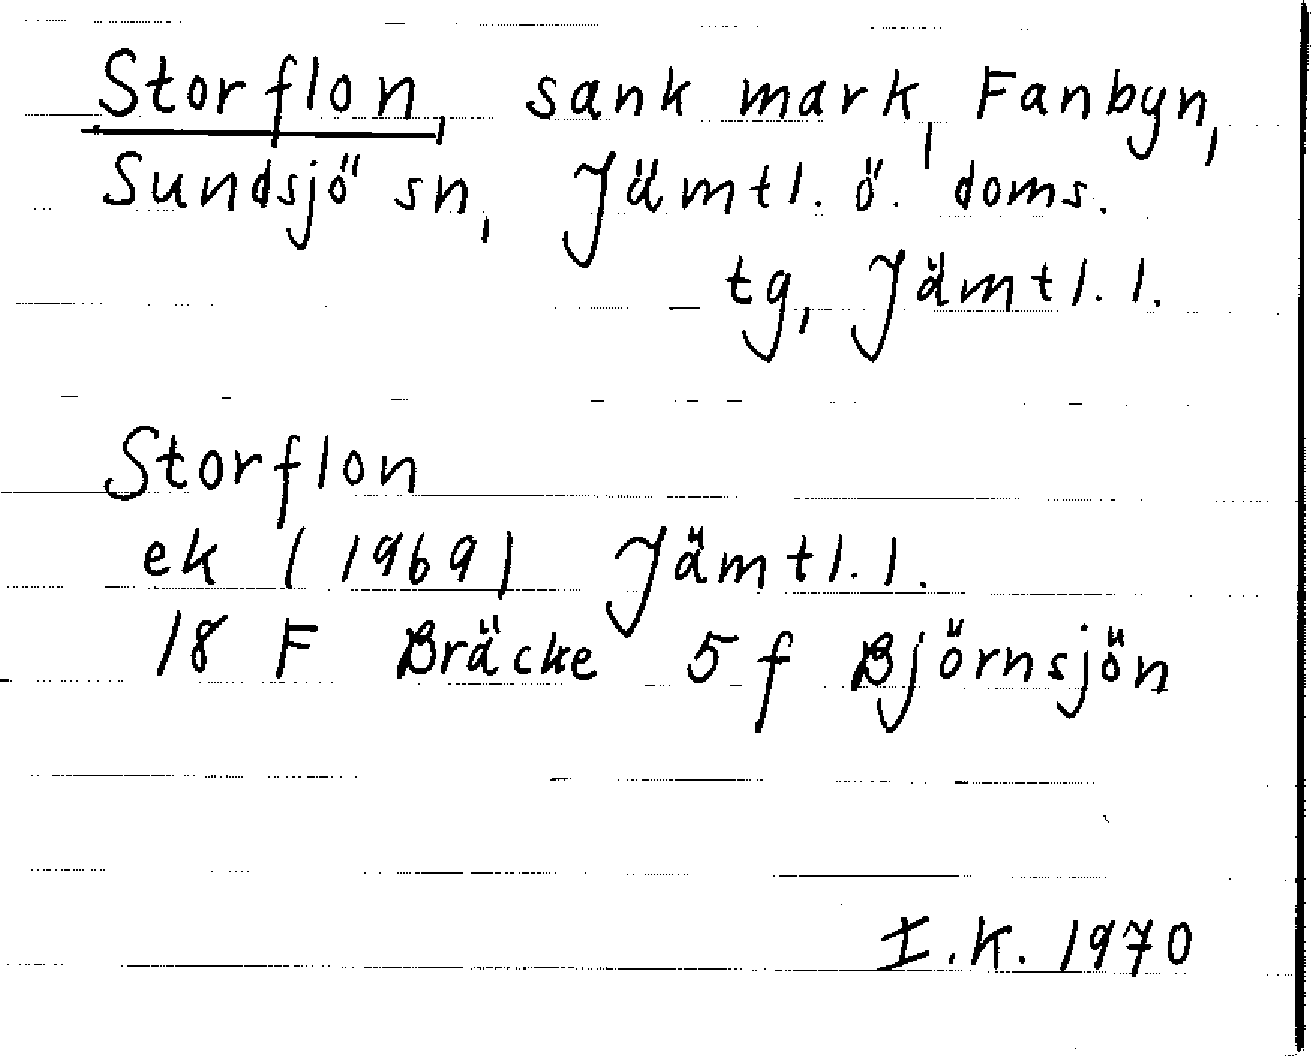 Storflon, sank mark, Fanbyn,
Sundsjö sn, Jämtl. ö. doms.
tg, Jämtl. l.
Storflon
ek (1969) Jämtl. l.
18 F Bräcke 5 f Björnsjön
I.K. 1970